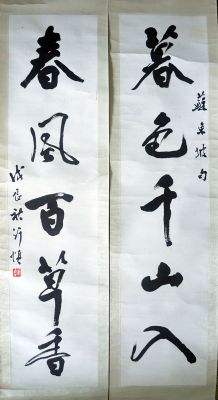 暮色千山入
蘇東坡句
春風百草香
戊辰秋